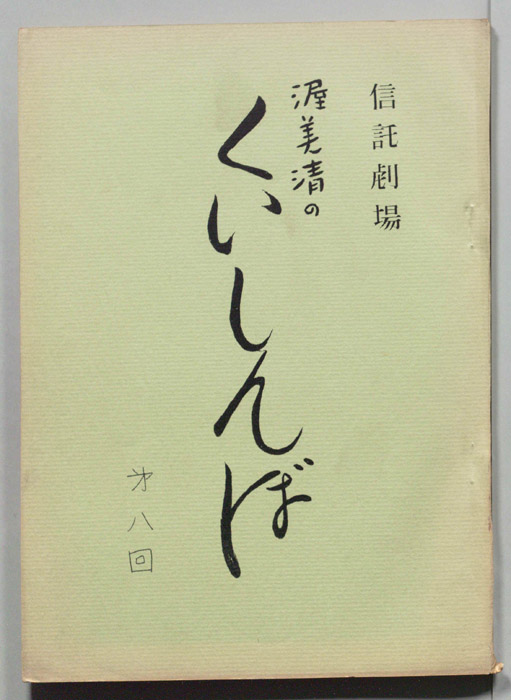 信託劇場
渥美清の
くいしんぼ
才八回